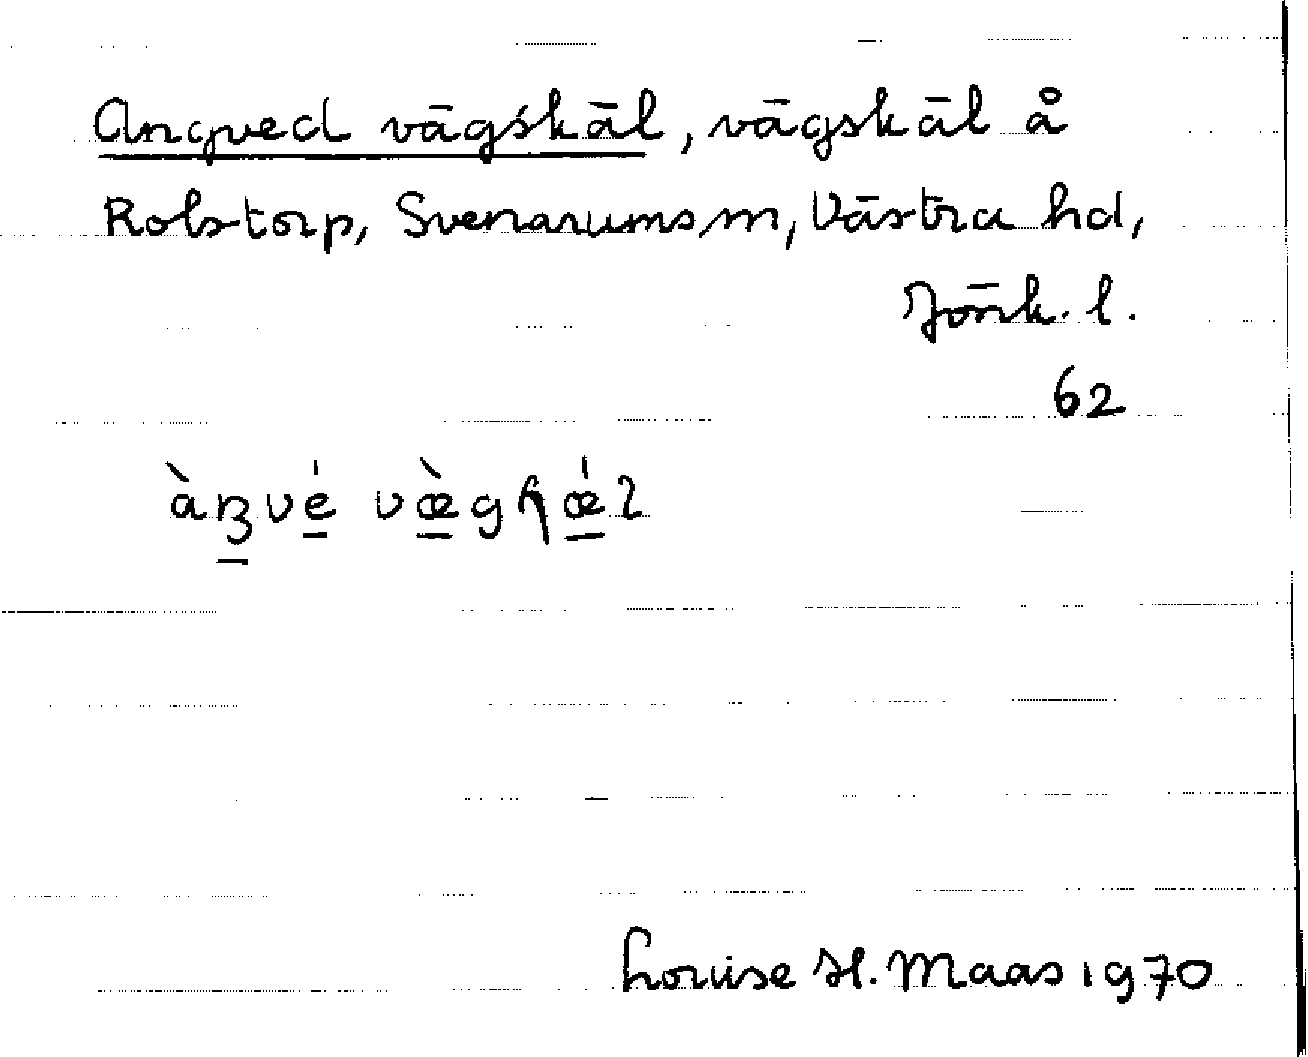 Angved vägskäl, vägskäl å
Rolstorp, Svenarums sn, Västra hd,
Jönk. l.
62
Louise H. Maas 1970